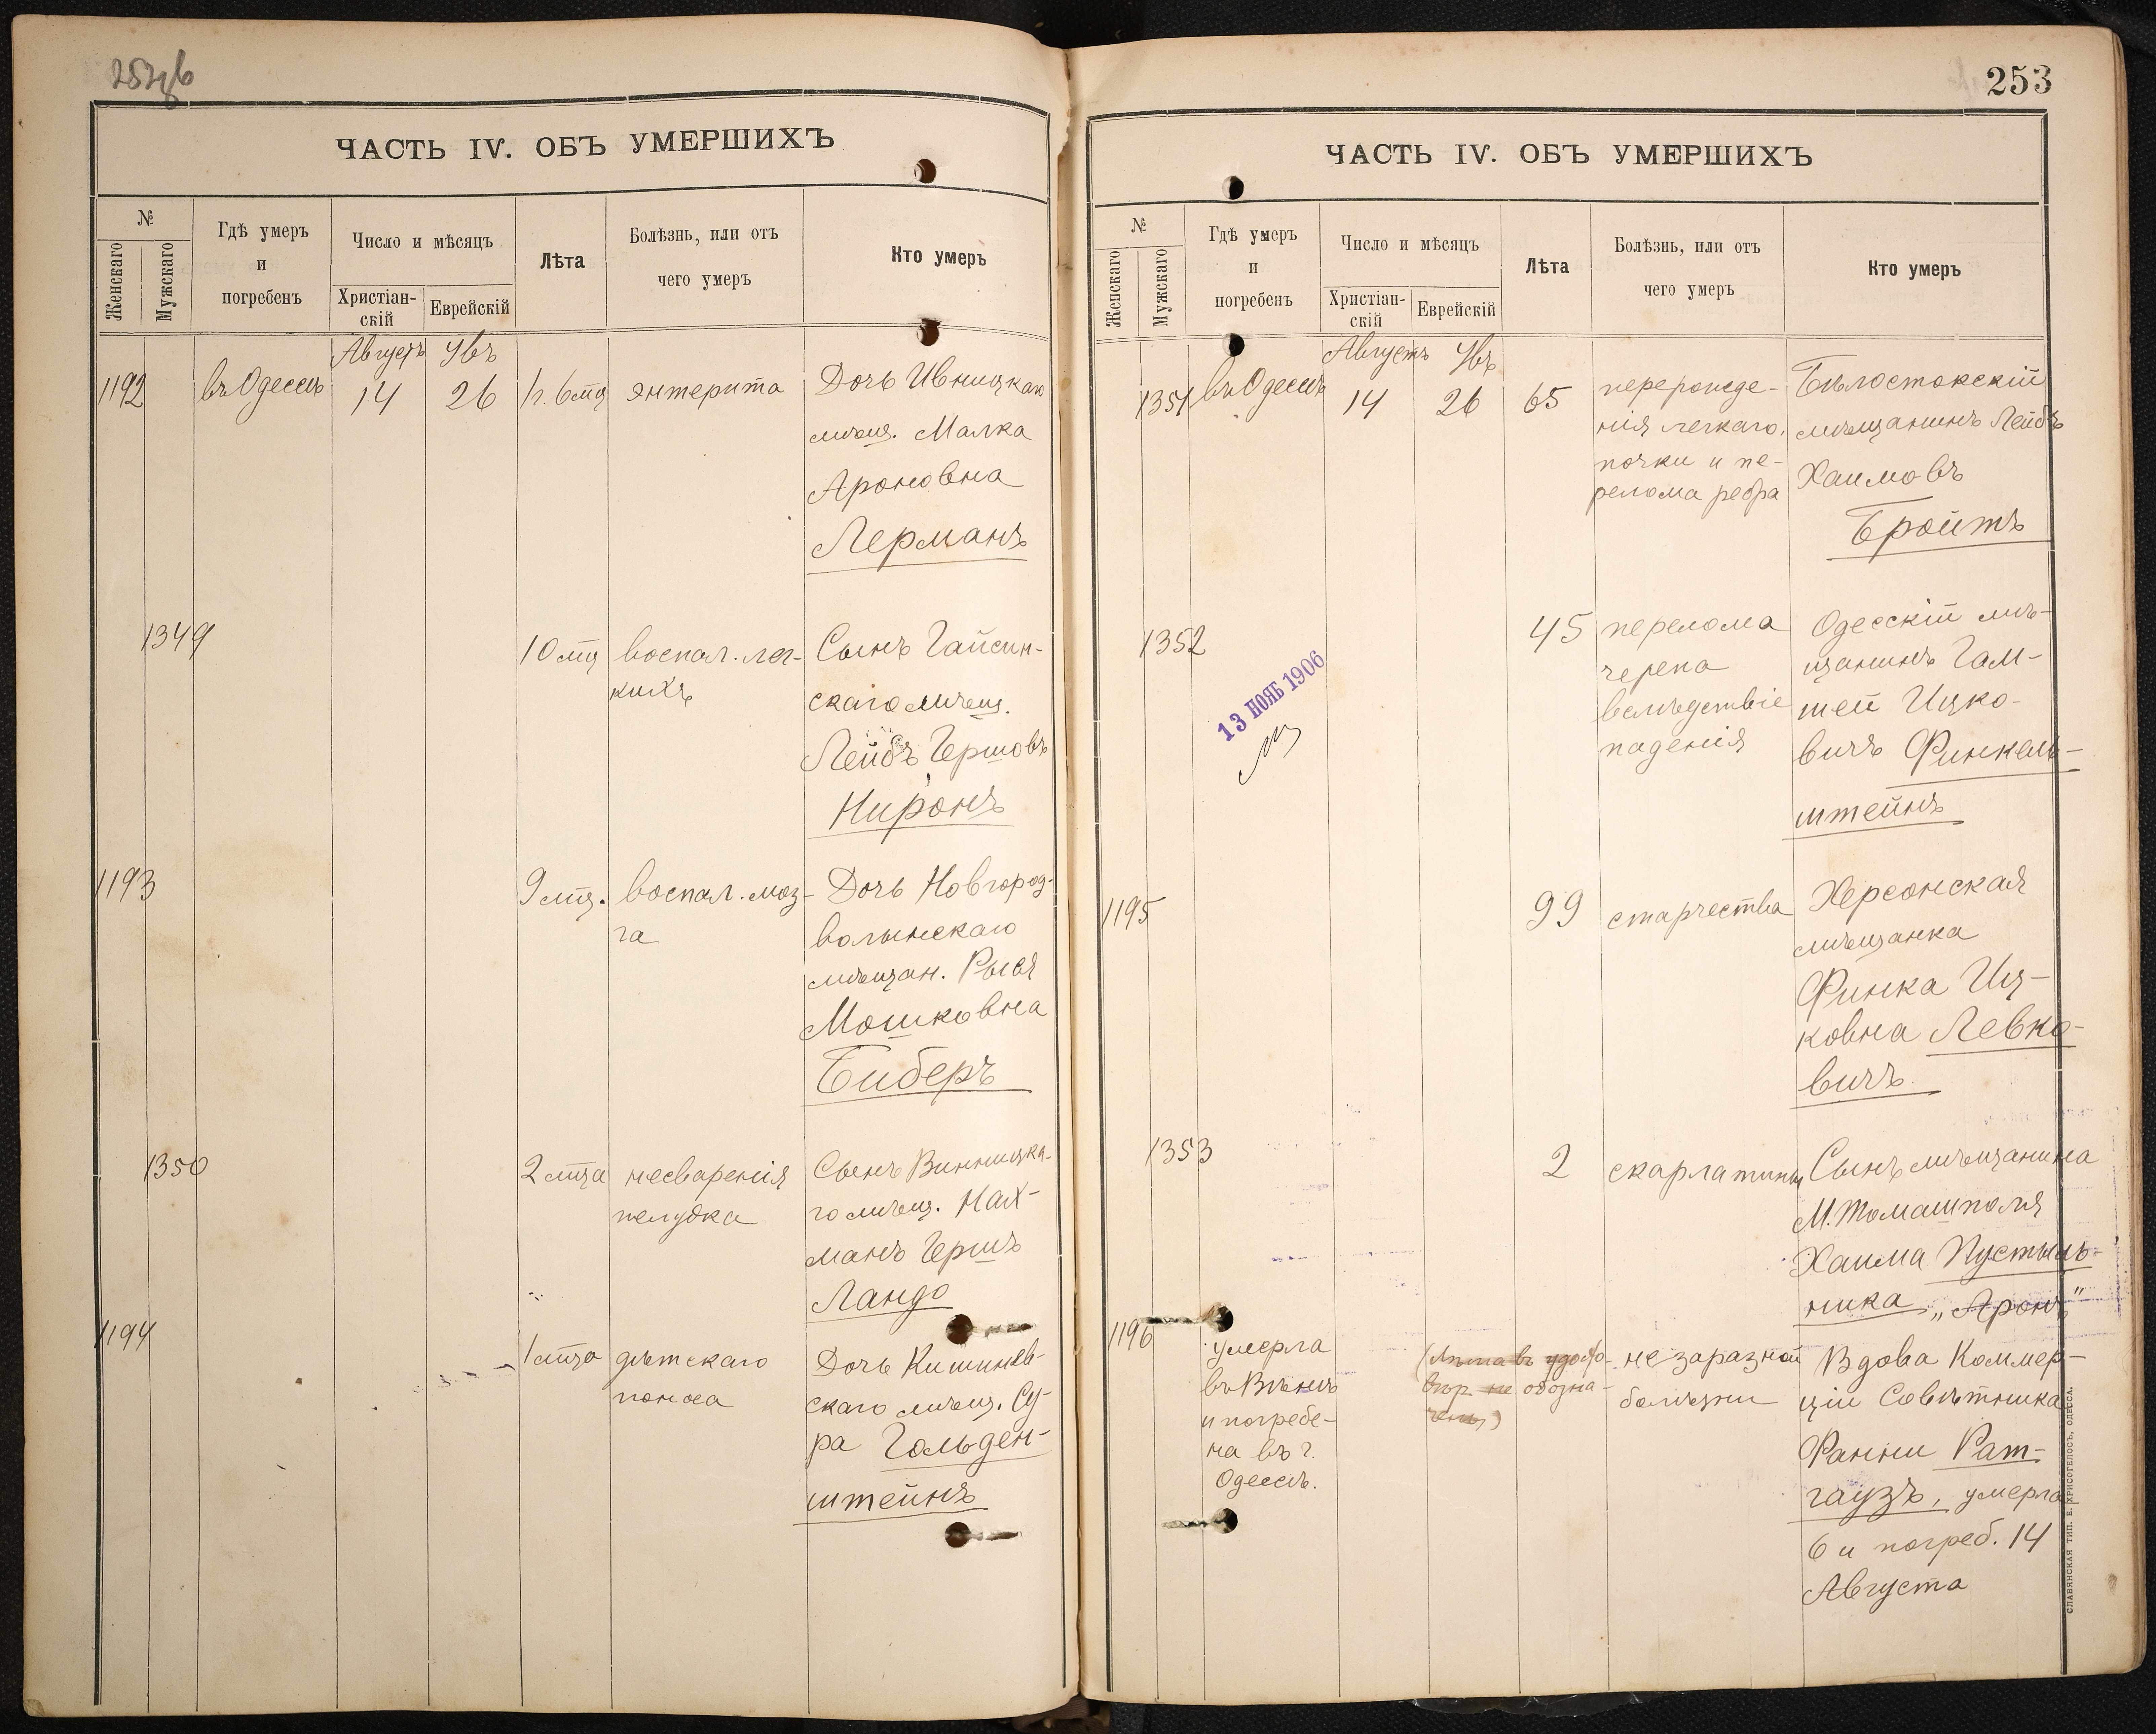 ЧАСТЬ IV. ОБЪ УМЕРШИХЪ
№
Женскаго
Мужскаго
Гдѣ умеръ
и
погребенъ
Число и мѣсяцъ
Христіан-
скій
Еврейскій
Лѣта
Болѣзнь, или отъ
чего умеръ
Кто умеръ
Августъ
1192
въ Одессѣ
14
26
1 г. 6 мц
энтерита
Дочь Ивницкаго
мѣщ. Малка
Ароновна
Лерманъ
1349
10 мц
воспал. лег-
кихъ
Сынъ Гайсин-
скаго мѣщ.
Лейбъ Гершовъ
Ниронъ
1193
9 мц.
воспал. моз-
га
Дочь Новгород-
волынскаго
мѣщан. Рыся
Мошковна
Биберъ
1350
2 мца
несваренія
желудка
Сынъ Винницка-
го мѣщ. Нах-
манъ Гершъ
Ландо
1194
1 мца
дѣтскаго
поноса
Дочь Кишинев-
скаго мѣщ. Су-
ра Гольден-
штейнъ
253
ЧАСТЬ IV. ОБЪ УМЕРШИХЪ
№
Женскаго
Мужскаго
Гдѣ умеръ
и
погребенъ
Число и мѣсяцъ
Христіан-
скій
Еврейскій
Лѣта
Болѣзнь, или отъ
чего умеръ
Кто умеръ
Августъ
1351
въ Одессѣ
14
26
65
перерожде-
нія легкаго,
почки и пе-
релома ребра
Бѣлостокскій
мѣщанинъ Лейбъ
Хаимовъ
Бройтъ
1352
13 НОЯБ 1906
45
перелома
черепа
вслѣдствіе
паденія
Одесскій мѣ-
щанинъ Гам-
шей Ицко-
вичъ Финкель-
штейнъ
1195
99
старчества
Херсонская
мѣщанка
Финка Иц-
ковна Левко-
вичъ
1353
2
скарлатины
Сынъ мѣщанина
М. Томашполя
Хаима Пустыль-
ника „Аронъ"
1196
умерла
въ Вѣнѣ
и погребе-
на въ г.
Одессѣ.
(Лѣта въ удосто-
вѣр. не обозна-
чены)
не заразной
болѣзни
Вдова Коммер-
ціи Совѣтника
Фанни Рат-
гаузъ, умерла
6 и погреб. 14
Августа
СЛАВЯНСКАЯ ТИП. Е. ХРИСОГЕЛОСЪ, ОДЕССА.